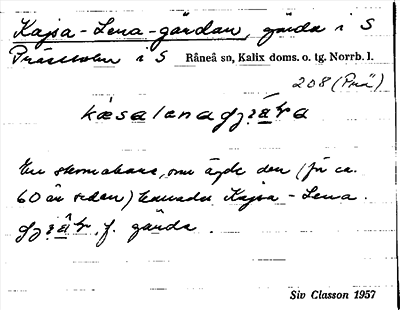 Kajsa-Lena-gärdan, gärda i S
Prästholm i S Råneå sn, Kalix doms. o. tg. Norrb. l.
208 (Prä)
En skomakare, som ägde den (för ca.
60 år sedan) kallades Kajsa-Lena.
f. gärda.
Siv Classon 1957